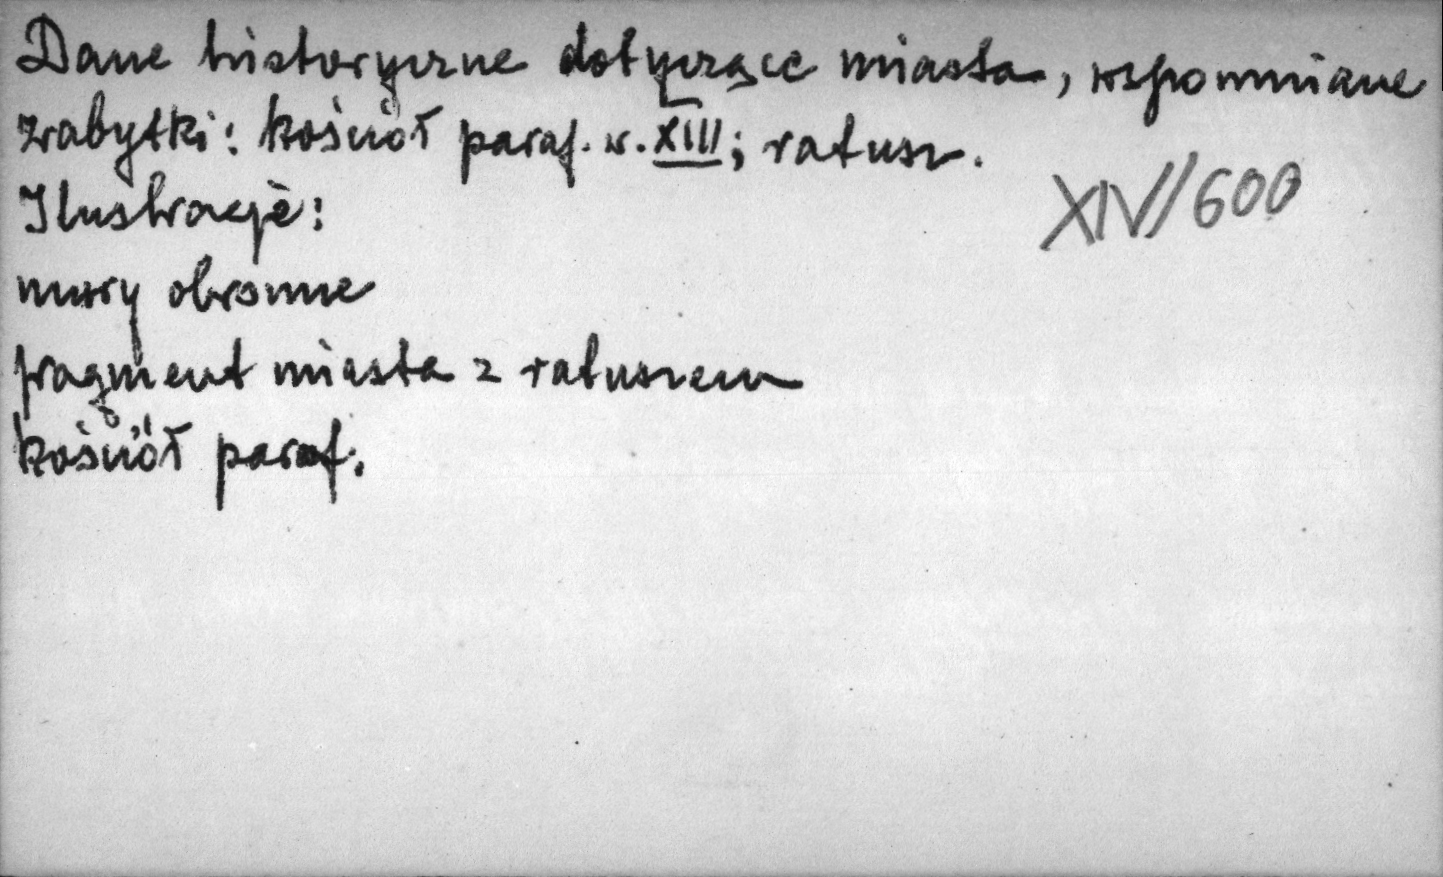 Dane historyczne dotyczące miasta, wspomniane
zabytki: kościół paraf. w. XIII; ratusz.
XIV/600
Ilustracje:
mury obronne
fragment miasta z ratuszem
kościół paraf.